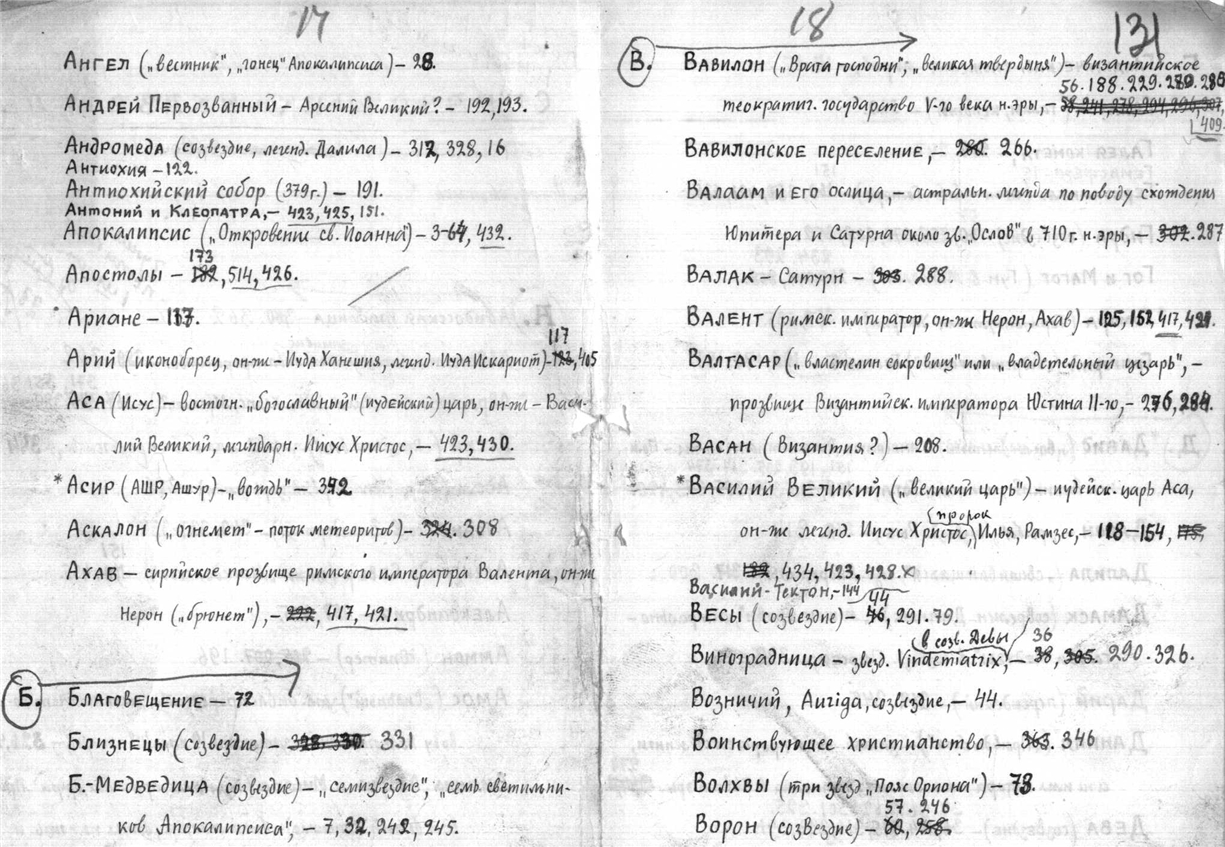 17
Ангел („вестник", „гонец" Апокалипсиса) – 28.
Андрей Первозванный – Арсений Великий? – 192, 193.
Андромеда (созвездие, легенд. Далила) – 312, 328, 16
Антиохия – 122.
Антиохийский собор (379 г.) – 191.
Антоний и Клеопатра, – 423, 425, 151.
Апокалипсис („Откровение св. Иоанна") – 3-64, 432.
173
Апостолы – 182, 514, 426.
* Ариане – 117.
117
Арий (иконоборец, он-же – Иуда Ханешия, легенд. Иуда Искариот) – 405
Аса (Исус) – восточн. „богославный" (иудейский) царь, он-же – Васи-
лий Великий, легендарн. Иисус Христос, – 423, 430.
* Асир (АШР, Ашур) – „вождь" – 392
Аскалон („огнемет" – поток метеоритов) – 324. 308
Ахав – сирийское прозвище римского императора Валента, он-же
Нерон („брюнет"), – 222, 417, 421.
Б. Благовещение – 72
Близнецы (созвездие) – 328 330. 331
Б.-Медведица (созвездие) – „семизвездие", „семь светильни-
ков Апокалипсиса", – 7, 32, 242, 245.
18 131
В. Вавилон („Врата господни", „великая твердыня") – византийское
56. 188. 229. 286
теократич. государство V-го века н. эры, –
409.
Вавилонское переселение, – 266.
Валаам и его ослица, – астральн. легенда по поводу схождения
Юпитера и Сатурна около зв. „Ослов" в 710 г. н. эры, – 302. 287
Валак – Сатурн – 303. 288.
Валент (римск. император, он-же Нерон, Ахав) – 125, 152, 417, 421.
Валтасар („властелин сокровищ" или „владетельный цезарь", –
прозвище Византийск. императора Юстина II-го, – 276, 284.
Васан (Византия?) – 208.
* Василий Великий („великий царь") – иудейск. царь Аса,
пророк
он-же легенд. Иисус Христос, Илья, Рамзес, – 118–154,
434, 423, 428.
Василий-Тектон, – 144
44
Весы (созвездие) – 291. 79.
в созв. Девы 36
Виноградница – звезд. Vindematrix, – 38, 305. 290. 326.
Возничий, Auriga, созвездие, – 44.
Воинствующее христианство, – 363. 346
Волхвы (три звезд „Пояс Ориона") – 73.
57. 246
Ворон (созвездие) – 60, 258.